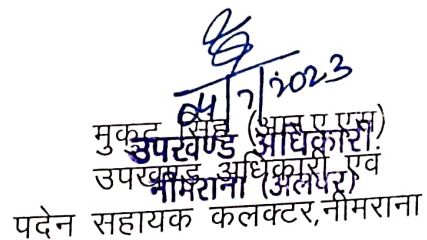 04/7/2023
मुकट सिंह (आर ए एस)
उपखण्ड अधिकारी
उपखण्ड अधिकारी एवं
नीमराना (अलवर)
पदेन सहायक कलक्टर,नीमराना